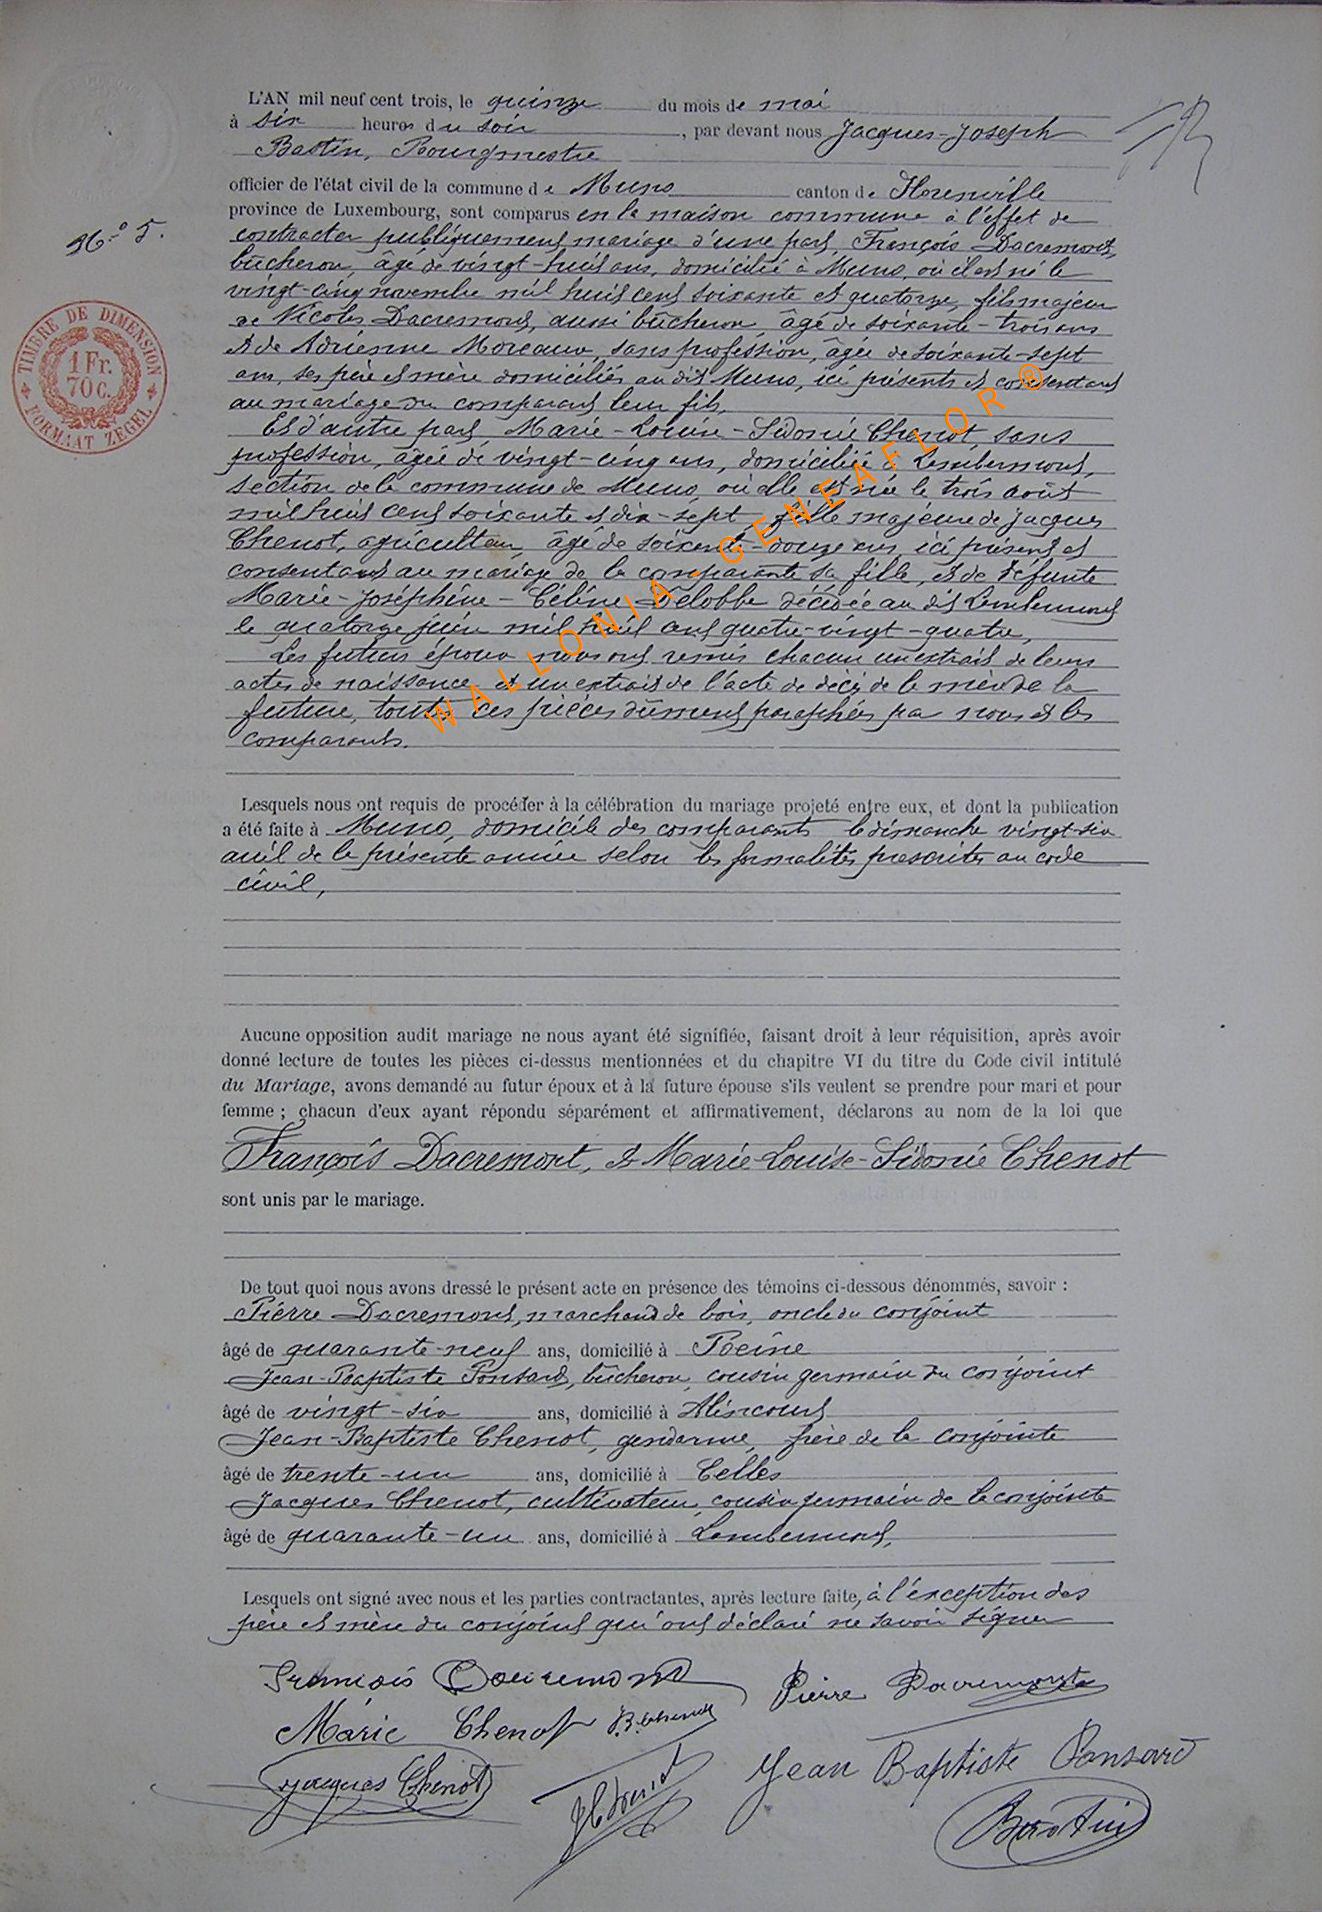 L'AN mil neuf cent trois, le quinze du mois de mai
à six heures du soir, par devant nous Jacques-Joseph
Bastin, Bourgmestre
officier de l'état civil de la commune de Muno canton de Florenville
province de Luxembourg, sont comparus en la maison commune à l'effet de
contracter publiquement mariage d'une part, François Dacremont,
bûcheron, âgé de vingt-huit ans, domicilié à Muno, où il est né le
vingt-cinq novembre mil huit cent soixante et quatorze, fils majeur
de Nicolas Dacremont, aussi bûcheron, âgé de soixante-trois ans
et de Adrienne Moreaux, sans profession, âgée de soixante-sept
ans, ses père et mère domiciliés au dit Muno, ici présents et consentant
au mariage du comparant leur fils,
Et d'autre part, Marie-Louise-Sidonie Chenot, sans
profession, âgée de vingt-cinq ans, domiciliée à Lambermont,
section de la commune de Muno, où elle est née le trois août
mil huit cent soixante et dix-sept, fille majeure de Jacques
Chenot, agriculteur, âgé de soixante-douze ans, ici présent et
consentant au mariage de la comparante sa fille, et de défunte
Marie-Joséphine-Céline Delobbe décédée au dit Lambermont
le quatorze juin mil huit cent quatre-vingt-quatre,
Les futurs époux nous ont remis chacun un extrait de leurs
actes de naissance et un extrait de l'acte de décès de la mère de la
future, toutes ces pièces dûment paraphées par nous et les
comparants.
N° 5.
TIMBRE DE DIMENSION
1 Fr.
70 c.
FORMAAT ZEGEL
WALLONIA - GENEAFLOR ®
Lesquels nous ont requis de procéder à la célébration du mariage projeté entre eux, et dont la publication
a été faite à Muno, domicile des comparants le dimanche vingt-six
avril de la présente année selon les formalités prescrites au code
civil,
Aucune opposition audit mariage ne nous ayant été signifiée, faisant droit à leur réquisition, après avoir
donné lecture de toutes les pièces ci-dessus mentionnées et du chapitre VI du titre du Code civil intitulé
du Mariage, avons demandé au futur époux et à la future épouse s'ils veulent se prendre pour mari et pour
femme ; chacun d'eux ayant répondu séparément et affirmativement, déclarons au nom de la loi que
François Dacremont, et Marie-Louise-Sidonie Chenot
sont unis par le mariage.
De tout quoi nous avons dressé le présent acte en présence des témoins ci-dessous dénommés, savoir :
Pierre Dacremont, marchand de bois, oncle du conjoint
âgé de quarante-neuf ans, domicilié à
Jean-Baptiste Ponsard, bûcheron, cousin germain du conjoint
âgé de vingt-six ans, domicilié à Alincourt
Jean-Baptiste Chenot, gendarme, frère de la conjointe
âgé de trente-un ans, domicilié à Celles
Jacques Chenot, cultivateur, cousin germain de la conjointe
âgé de quarante-un ans, domicilié à Lambermont,
Lesquels ont signé avec nous et les parties contractantes, après lecture faite, à l'exception des
père et mère du conjoint qui ont déclaré ne savoir signer
François Dacremont Pierre Dacremont
Marie Chenot J.B. Chenot
Jacques Chenot Jean Baptiste Ponsard
Bastin